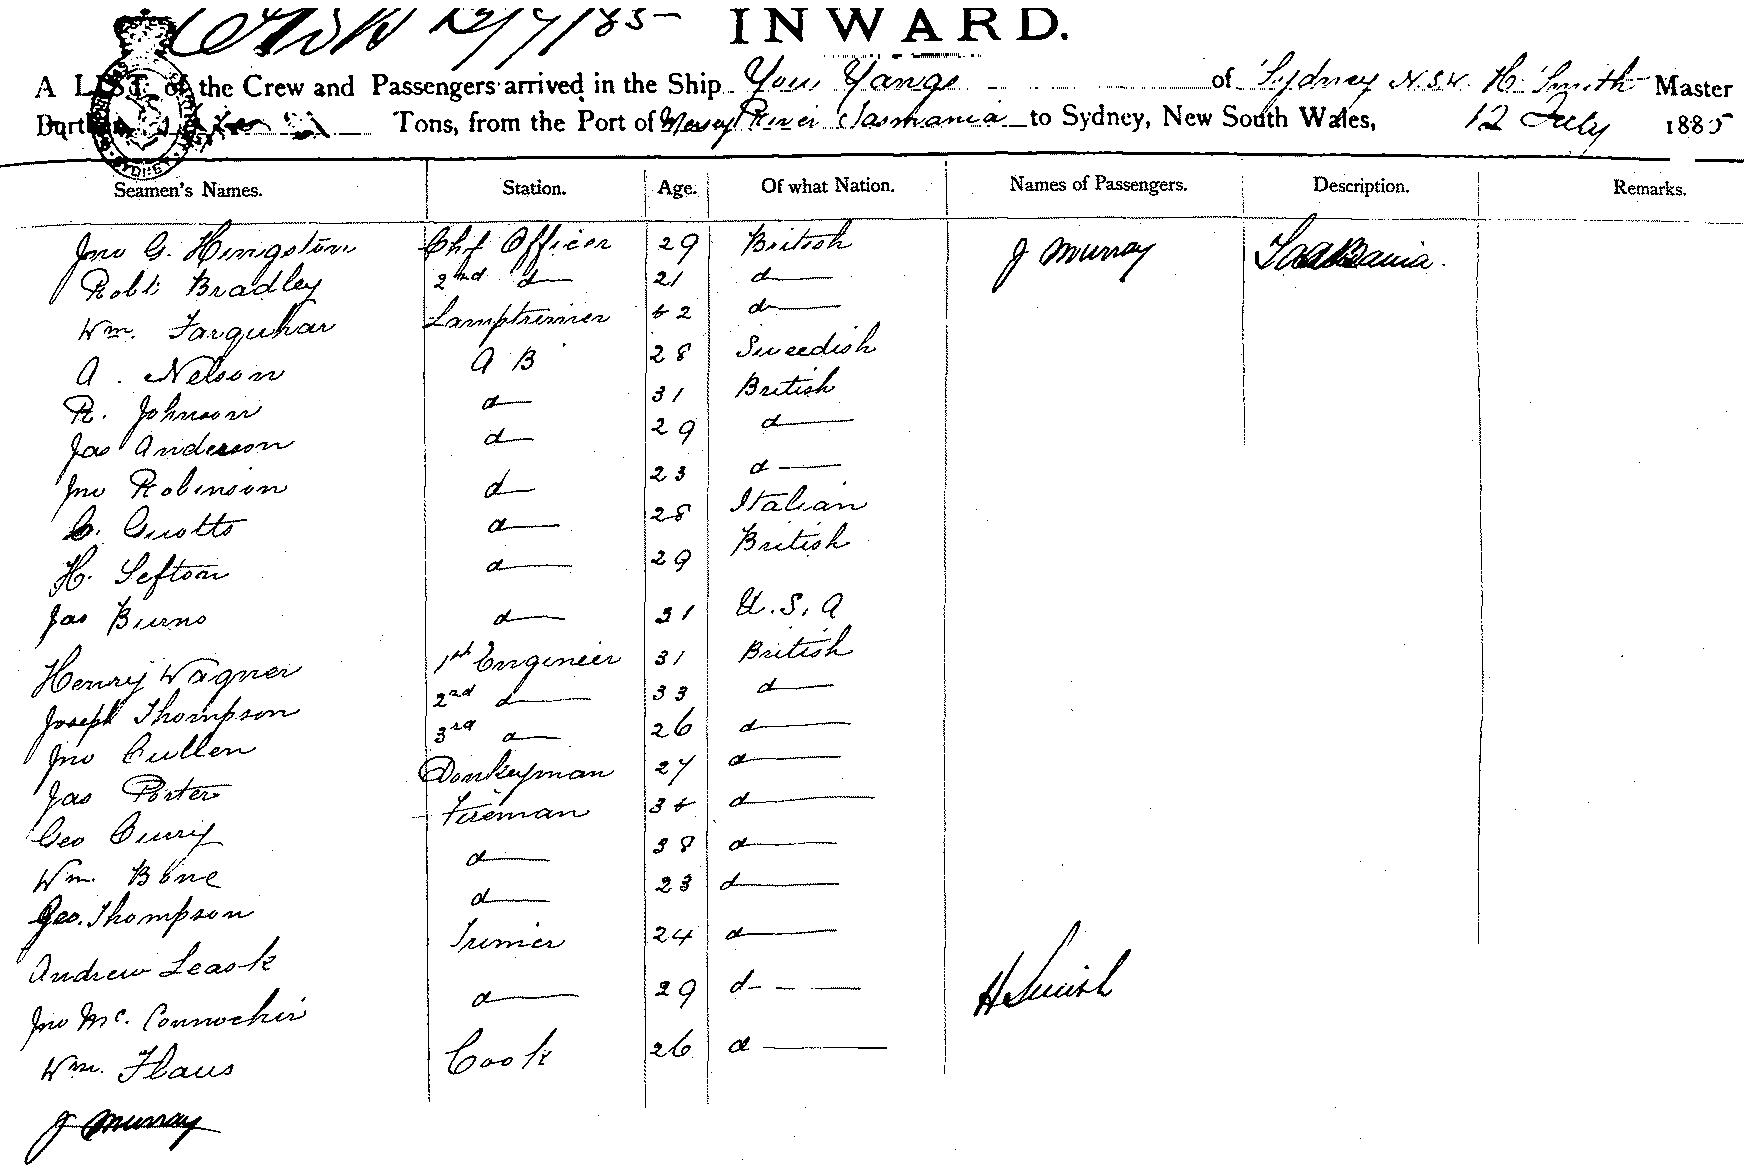 12/7/85 INWARD.
A LIST of the Crew and Passengers arrived in the Ship You Yangs of Sydney N.S.W. H. Smith Master
Tons, from the Port of Mersey River Tasmania to Sydney, New South Wales, 12 July 1885
Seamen's Names. Station. Age. Of what Nation. Names of Passengers. Description. Remarks.
Jno G. Hingston Chf Officer 29 British J Murray
Robt Bradley 2nd d 21 d
Wm. Farquhar Lamptrimer 42 d
A. Nelson A B 28 Sweedish
R. Johnson d 31 British
Jas Anderson d 29 d
Jno Robinson d 23 d
C. Guotto d 28 Italian
H. Sefton d 29 British
Jas Burns d 31 U.S.A
Henry Wagner 1st Engineer 31 British
Joseph Thompson 2nd d 33 d
Jno Cullen 3rd d 26 d
Jas Porter Donkeyman 27 d
Geo Curry Fireman 34 d
Wm. Bone d 38 d
Geo. Thompson d 23 d
Andrew Leask Trimer 24 d
Jno Mc. Connochie d 29 d
Wm. Flaus Cook 26 d
J Murray
H Smith